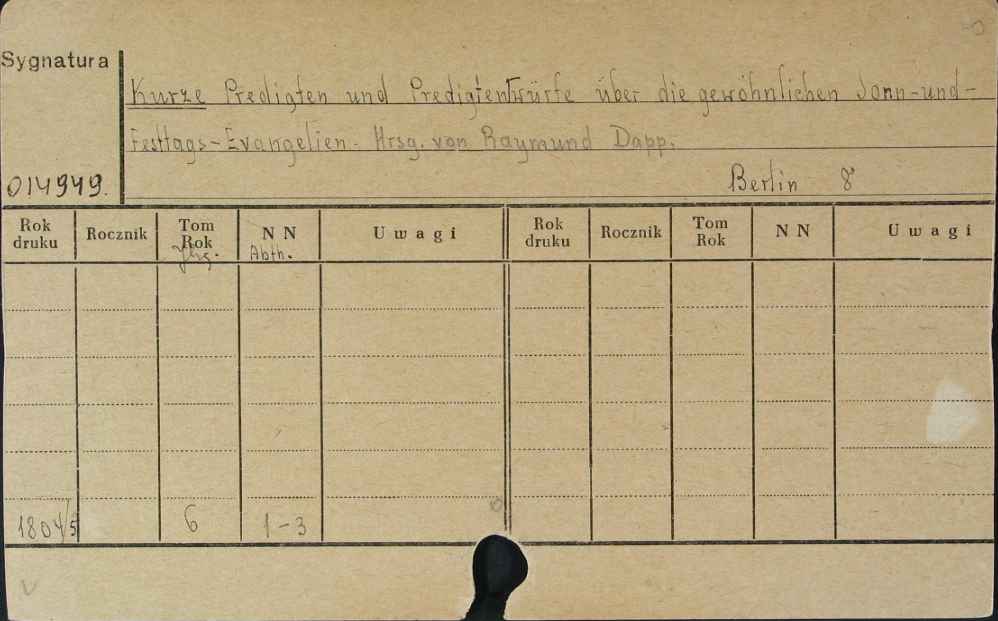 Sygnatura
Kurze Predigten und Predigtentwürfe über die gewöhnlichen Sonn-und-
Festtags-Evangelien. Hrsg. von Raymund Dapp.
014949.
Berlin 8
Rok druku Rocznik Tom Rok NN Uwagi Rok druku Rocznik Tom Rok NN Uwagi
Jhg. Abth.
1804/5 6 1-3